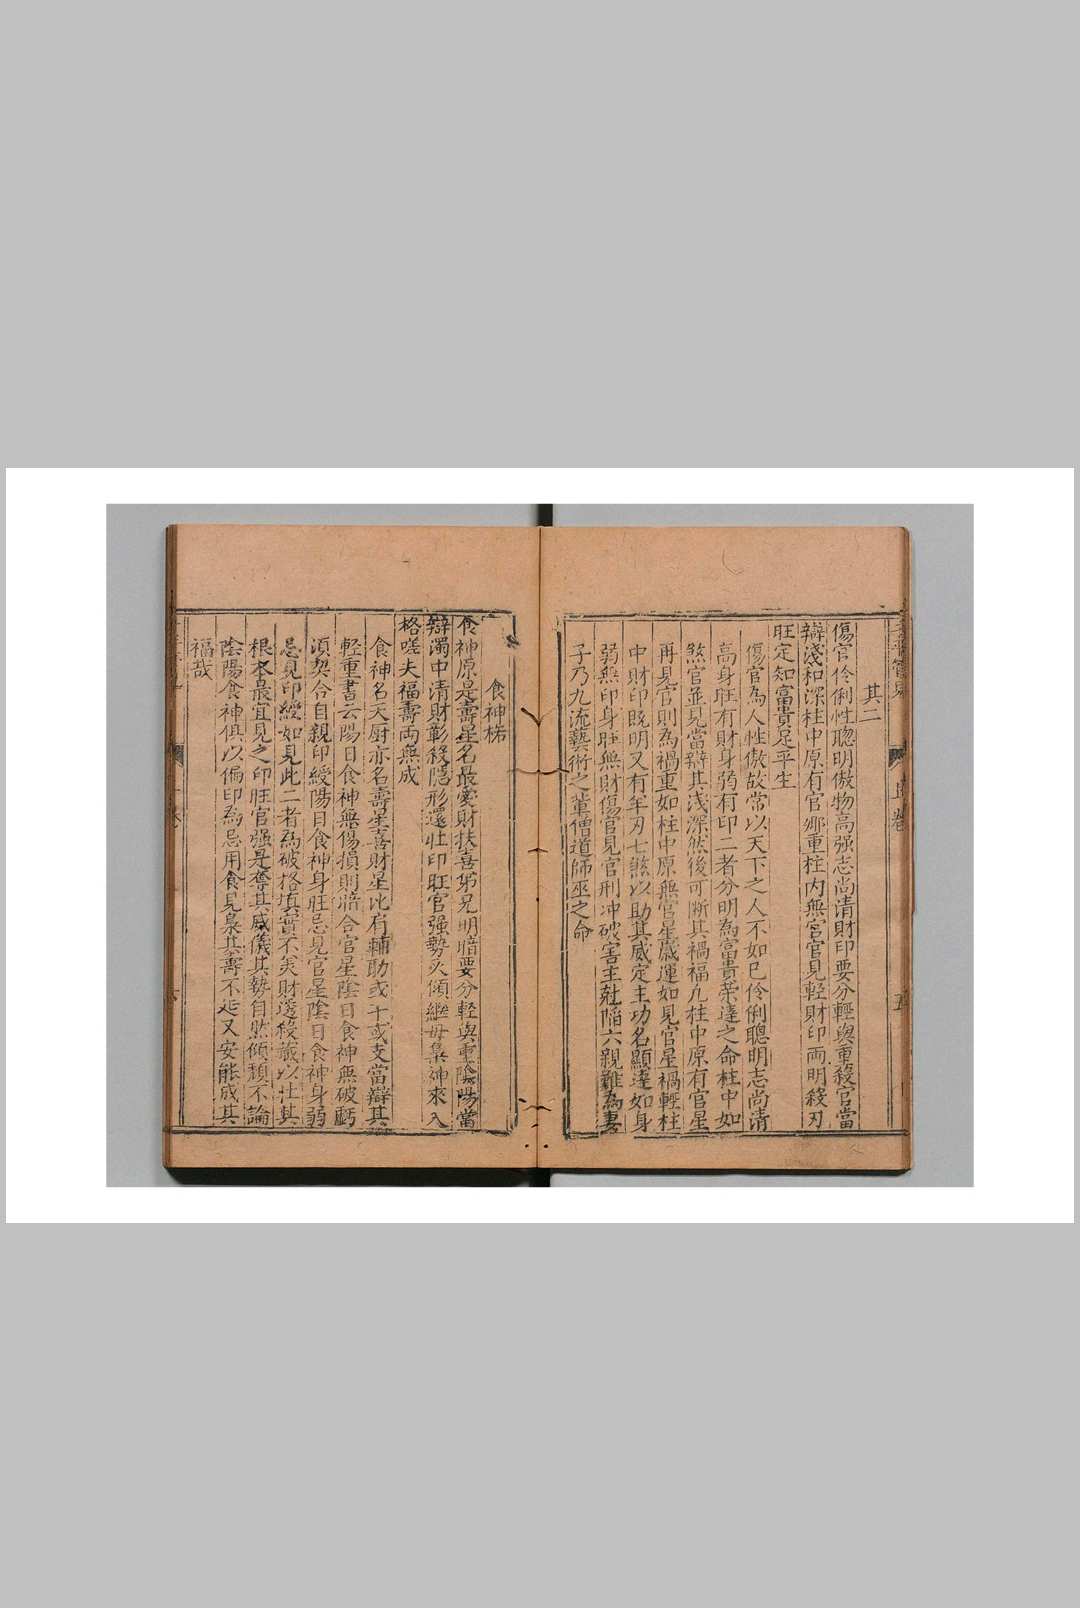 其二
傷官伶俐性聰明傲物高强志尚清財印要分輕與重殺官當
辯淺和深柱中原有官鄉重柱内無官官見輕財印両明殺刃
旺定知富貴足平生
傷官為人性傲故常以天下之人不如己伶俐聰明志尚清
高身旺有財身弱有印二者分明為富貴荣達之命柱中如
煞官並見當辯其浅深然後可断其禍福凡柱中原有官星
再見官則為禍重如柱中原無官星歲運如見官星禍輕柱
中財印既明又有年刃七煞以助其威定主功名顯達如身
弱無印身旺無財傷官見官刑冲破害主尅陥六親難為妻
子乃九流藝術之輩僧道師巫之命
食神格
食神原是壽星名最愛財扶喜弟兄明暗要分輕與重陰陽當
辯濁中清財彰殺隱形還壮印旺官强勢必傾繼母梟神來入
格嗟夫福壽両無成
食神名天厨亦名壽星喜財星比肩輔助或干或支當辯其
輕重書云陽日食神無傷損則暗合官星陰日食神無破虧
須契合自親印綬陽日食神身旺忌見官星陰日食神身弱
忌見印綬如見此二者為破格填實不矣財透殺藏以壮其
根本最宜見之印旺官强是奪其威儀其勢自然傾頹不論
陰陽食神俱以偏印為忌用食見梟其壽不延又安能成其
福哉